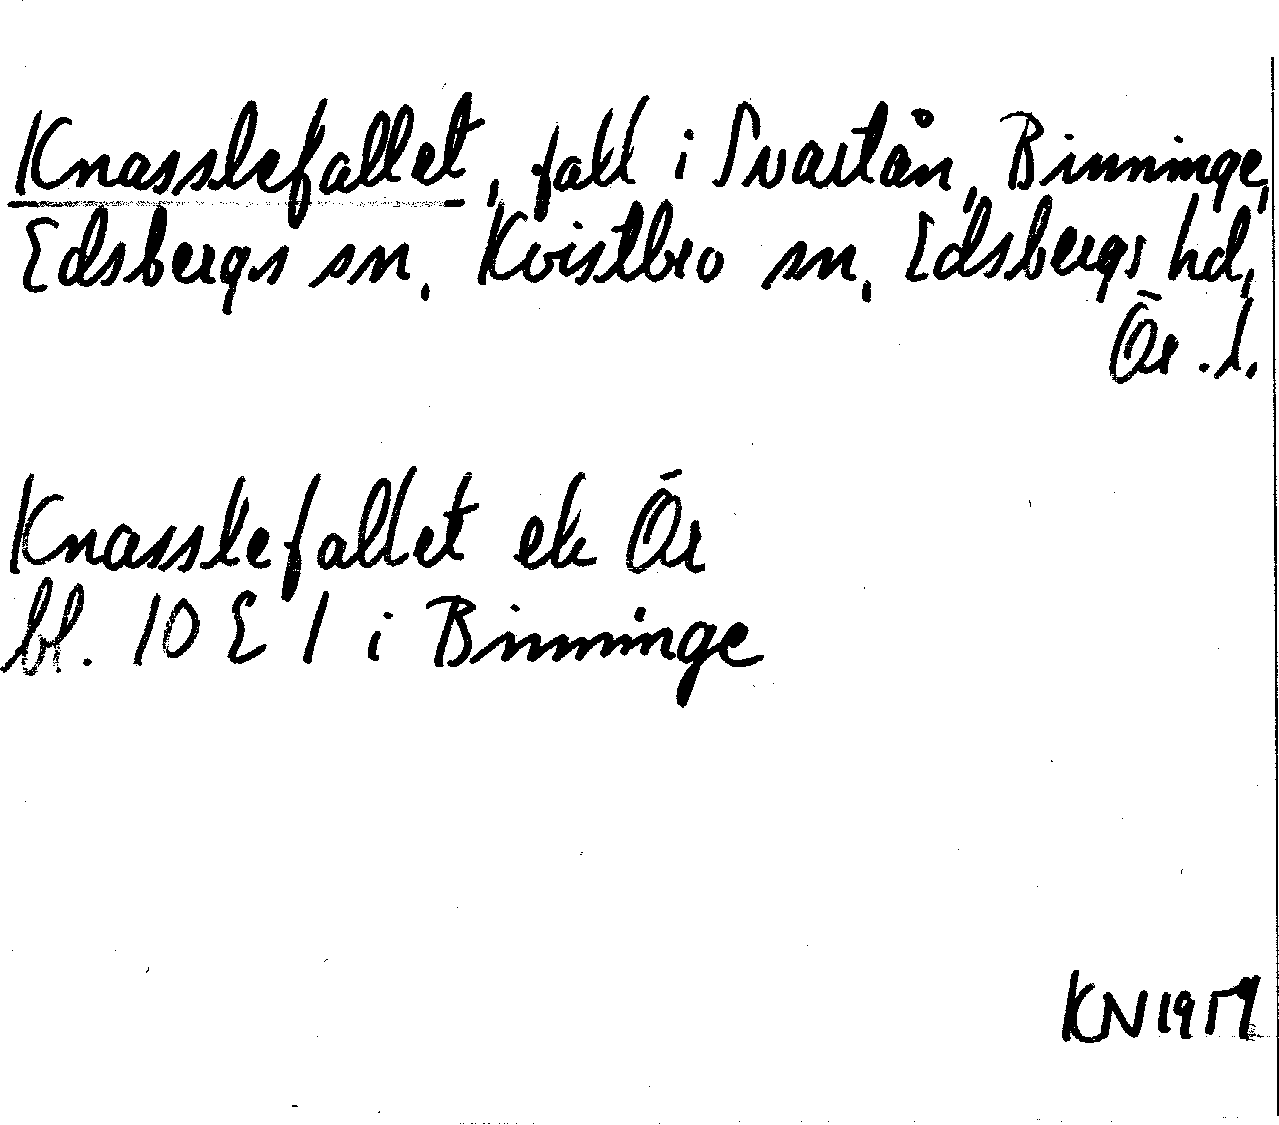 Knasslefallet, fall i Svartån, Binninge,
Edsbergs sn, Kvistbro sn, Edsbergs hd,
Ör. l.
Knasslefallet ek Ör
bl. 10 E 1 i Binninge
KN 1959